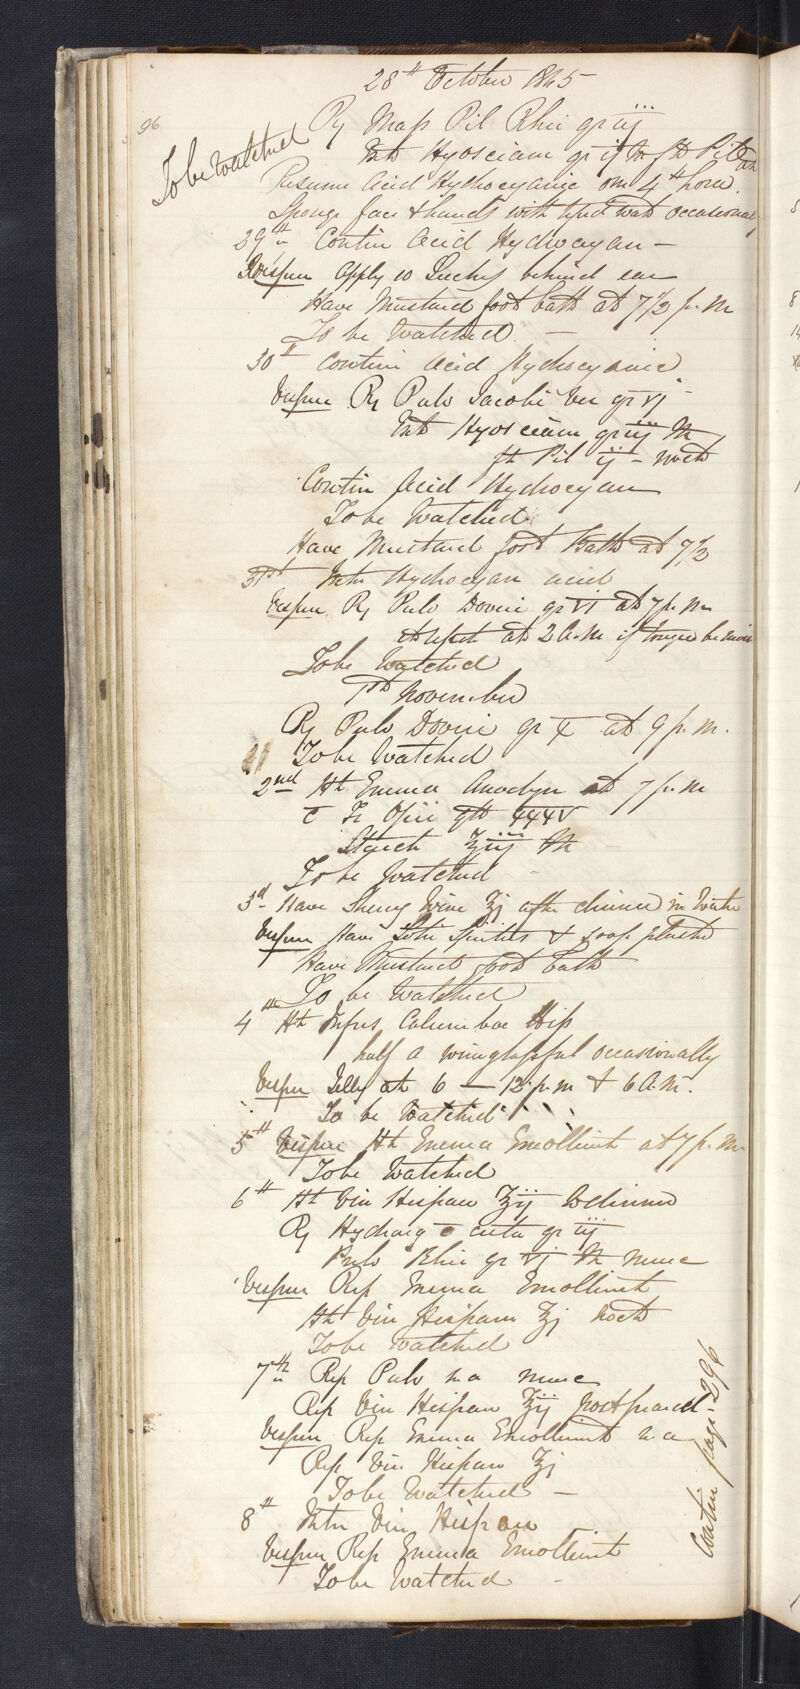 96
28th October 1845
To be Watched
Rx Mass Pil Rhei gr iij
Ext Hyosciam gr ij M ft Pil
Resume Acid Hydrocyanic om 4th hora.
Sponge face & hands with tepid water occasionally
29th Contin Acid Hydrocyan –
Vespere Apply 10 Leeches behind ear
Have Mustard foot bath at 7½ p.m
To be Watched –
30th Contin Acid Hydrocyanic
Vespere Rx Pulv Jacobi Ver gr vj
Ext Hyosciam gr iij M
ft Pil ij – nocte
Contin Acid Hydrocyan
To be Watched
Have Mustard foot Bath at 7½
31st Intr Hydrocyan acid
Vespere Rx Pulv Doveri gr vj at 7 p.m
at 2 A.M if tongue be moist
To be Watched
1st November
Rx Pulv Doveri gr x at 9 p.m.
To be Watched
2nd Ht Enema Anodyn at 7 p.m
c Tr Opii gtt xxxv
Starch ℥iij M
To be Watched
3rd Have Sherry Wine ℥j after dinner in Water
Vespere Have Soap plaster
Have Mustard foot bath
To be Watched
4th Ht Infus Calumbae
half a wineglassful occasionally
Vespere Jelly at 6 – 12 p.m & 6 A.M.
To be Watched
5th Vespere Ht Enema Emollient at 7 p.m.
To be Watched
6th Ht Vin Hispan ℥ij
Rx Hydrarg c creta gr iij
Pulv Rhei gr vj M nunc
Vespere Rep Enema Emollient
Ht Vin Hispan ℥j nocte
To be Watched
7th Rep Pulv m a nunc
Rep Vin Hispan ℥ij post prand
Vespere Rep Enema Emollient m a
Rep Vin Hispan ℥j
To be Watched –
8th Intr Vin Hispan
Vespere Rep Enema Emollient
To be Watched –
Contin page 296